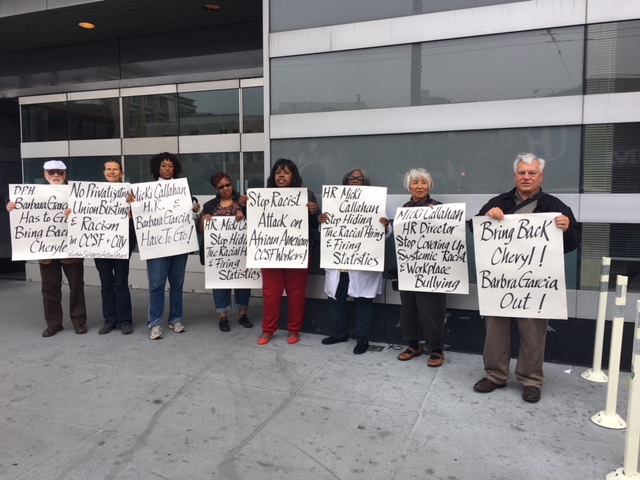 DPH
Barbara Garcia
Has to Go
Bring Back
Cheryle
No Privatizating
Union Busting
& Racism
in CCSF + City
Micki Callahan
H.R. &
Barbara Garcia
Have To Go!
HR Micki
Callahan
Stop Hiding
The Racial Hiring
& Firing
Statistics
Stop Racist
Attack on
African American
CCSF Workers!
HR Micky
Callahan
Stop Hiding
The Racial Hiring
& Firing
Statistics
Micki Callahan
HR Director
Stop Covering Up
Systemic Racist
& Workplace
Bullying
Bring Back
Cheryl!
Barbra Garcia
Out!